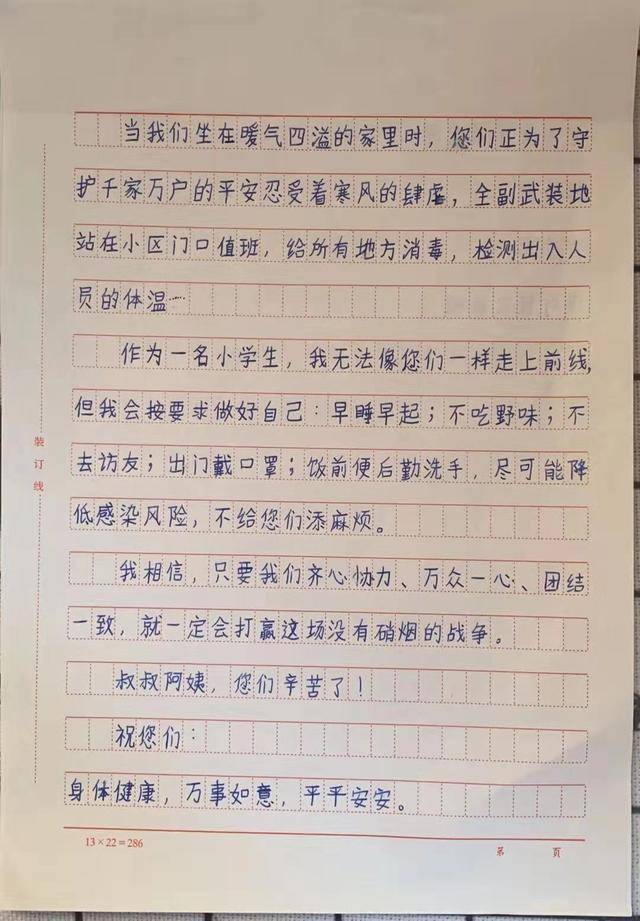 当我们坐在暖气四溢的家里时，您们正为了守
护千家万户的平安忍受着寒风的肆虐，全副武装地
站在小区门口值班，给所有地方消毒，检测出入人
员的体温……
作为一名小学生，我无法像您们一样走上前线，
但我会按要求做好自己：早睡早起；不吃野味；不
去访友；出门戴口罩；饭前便后勤洗手，尽可能降
低感染风险，不给您们添麻烦。
我相信，只要我们齐心协力、万众一心、团结
一致，就一定会打赢这场没有硝烟的战争。
叔叔阿姨，您们辛苦了！
祝您们：
身体健康，万事如意，平平安安。
装订线
13×22=286
第 页